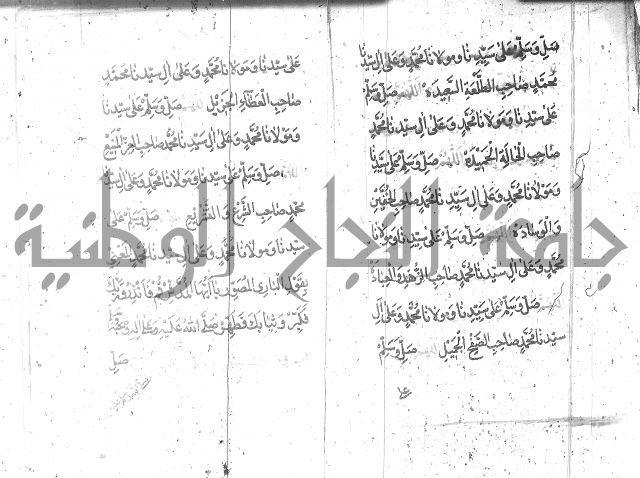 صل وسلم على سيدنا ومولانا محمد وعلى ال سيدنا
محمد صاحب الطلعة السعيدة اللهم صل وسلم
على سيدنا ومولانا محمد وعلى ال سيدنا محمد
صاحب الحالة الحميدة اللهم صل وسلم على سيدنا
ومولانا محمد وعلى ال سيدنا محمد صاحب
والوسادة اللهم صل وسلم على سيدنا ومولانا
محمد وعلى ال سيدنا محمد صاحب الزهد والعبادة
اللهم صل وسلم على سيدنا ومولانا محمد وعلى ال
سيدنا محمد صاحب الصفح الجميل اللهم صل وسلم
على سيدنا ومولانا محمد وعلى ال سيدنا محمد
صاحب العطاء الجزيل اللهم صل وسلم على سيدنا
ومولانا محمد وعلى ال سيدنا محمد صاحب
اللهم صل وسلم على سيدنا ومولانا محمد وعلى ال سيدنا
محمد صاحب الشرع والشرايع اللهم صل وسلم على
سيدنا ومولانا محمد وعلى ال سيدنا محمد
بقول الباري المصور يا ايها المدثر قم فانذر وربك
فكبر وثيابك فطهر صلى الله عليه وعلى اله وصحبه
صل
جامعة النجاح الوطنية